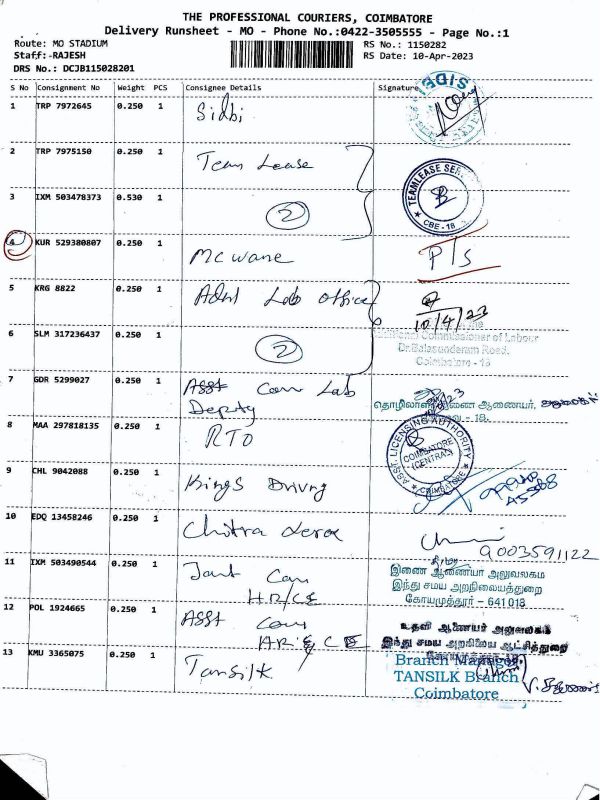 THE PROFESSIONAL COURIERS, COIMBATORE
Delivery Runsheet - MO - Phone No.:0422-3505555 - Page No.:1
Route: MO STADIUM
RS No.: 1150282
Staff:-RAJESH
RS Date: 10-Apr-2023
DRS No.: DCJB115028201
S No Consignment No Weight PCS Consignee Details Signature
1 TRP 7972645 0.250 1 Sidbi
2 TRP 7975150 0.250 1 Team Lease
3 IXM 503478373 0.530 1 2
TEAMLEASE
CBE - 18
4 KUR 529380807 0.250 1 Mc wane P/S
5 KRG 8822 0.250 1 Adnl Lab office
10/4/23
6 SLM 317236437 0.250 1 2
Commissioner of Labour
Dr.Balasundaram Road,
Coimbatore - 18
7 GDR 5299027 0.250 1 Asst Com Lab
Deputy
ஆணையர்,
8 MAA 297818135 0.250 1 RTO
ASST LICENSING AUTHORITY
COIMBATORE
(CENTRAL)
COIMBATORE
9 CHL 9042088 0.250 1 Kings Driving
10 EDQ 13458246 0.250 1 Chitra
9003591122
11 IXM 503490544 0.250 1 Joint Com
HR/CE
இணை ஆணையர் அலுவலகம்
இந்து சமய அறநிலையத்துறை
கோயமுத்தூர் - 641018
12 POL 1924665 0.250 1 Asst Com
HR & CE
உதவி ஆணையர் அலுவலகம்
இந்து சமய அறநிலைய ஆட்சித்துறை
13 KMU 3365075 0.250 1 Tansilk
Branch Manager
TANSILK Branch
Coimbatore